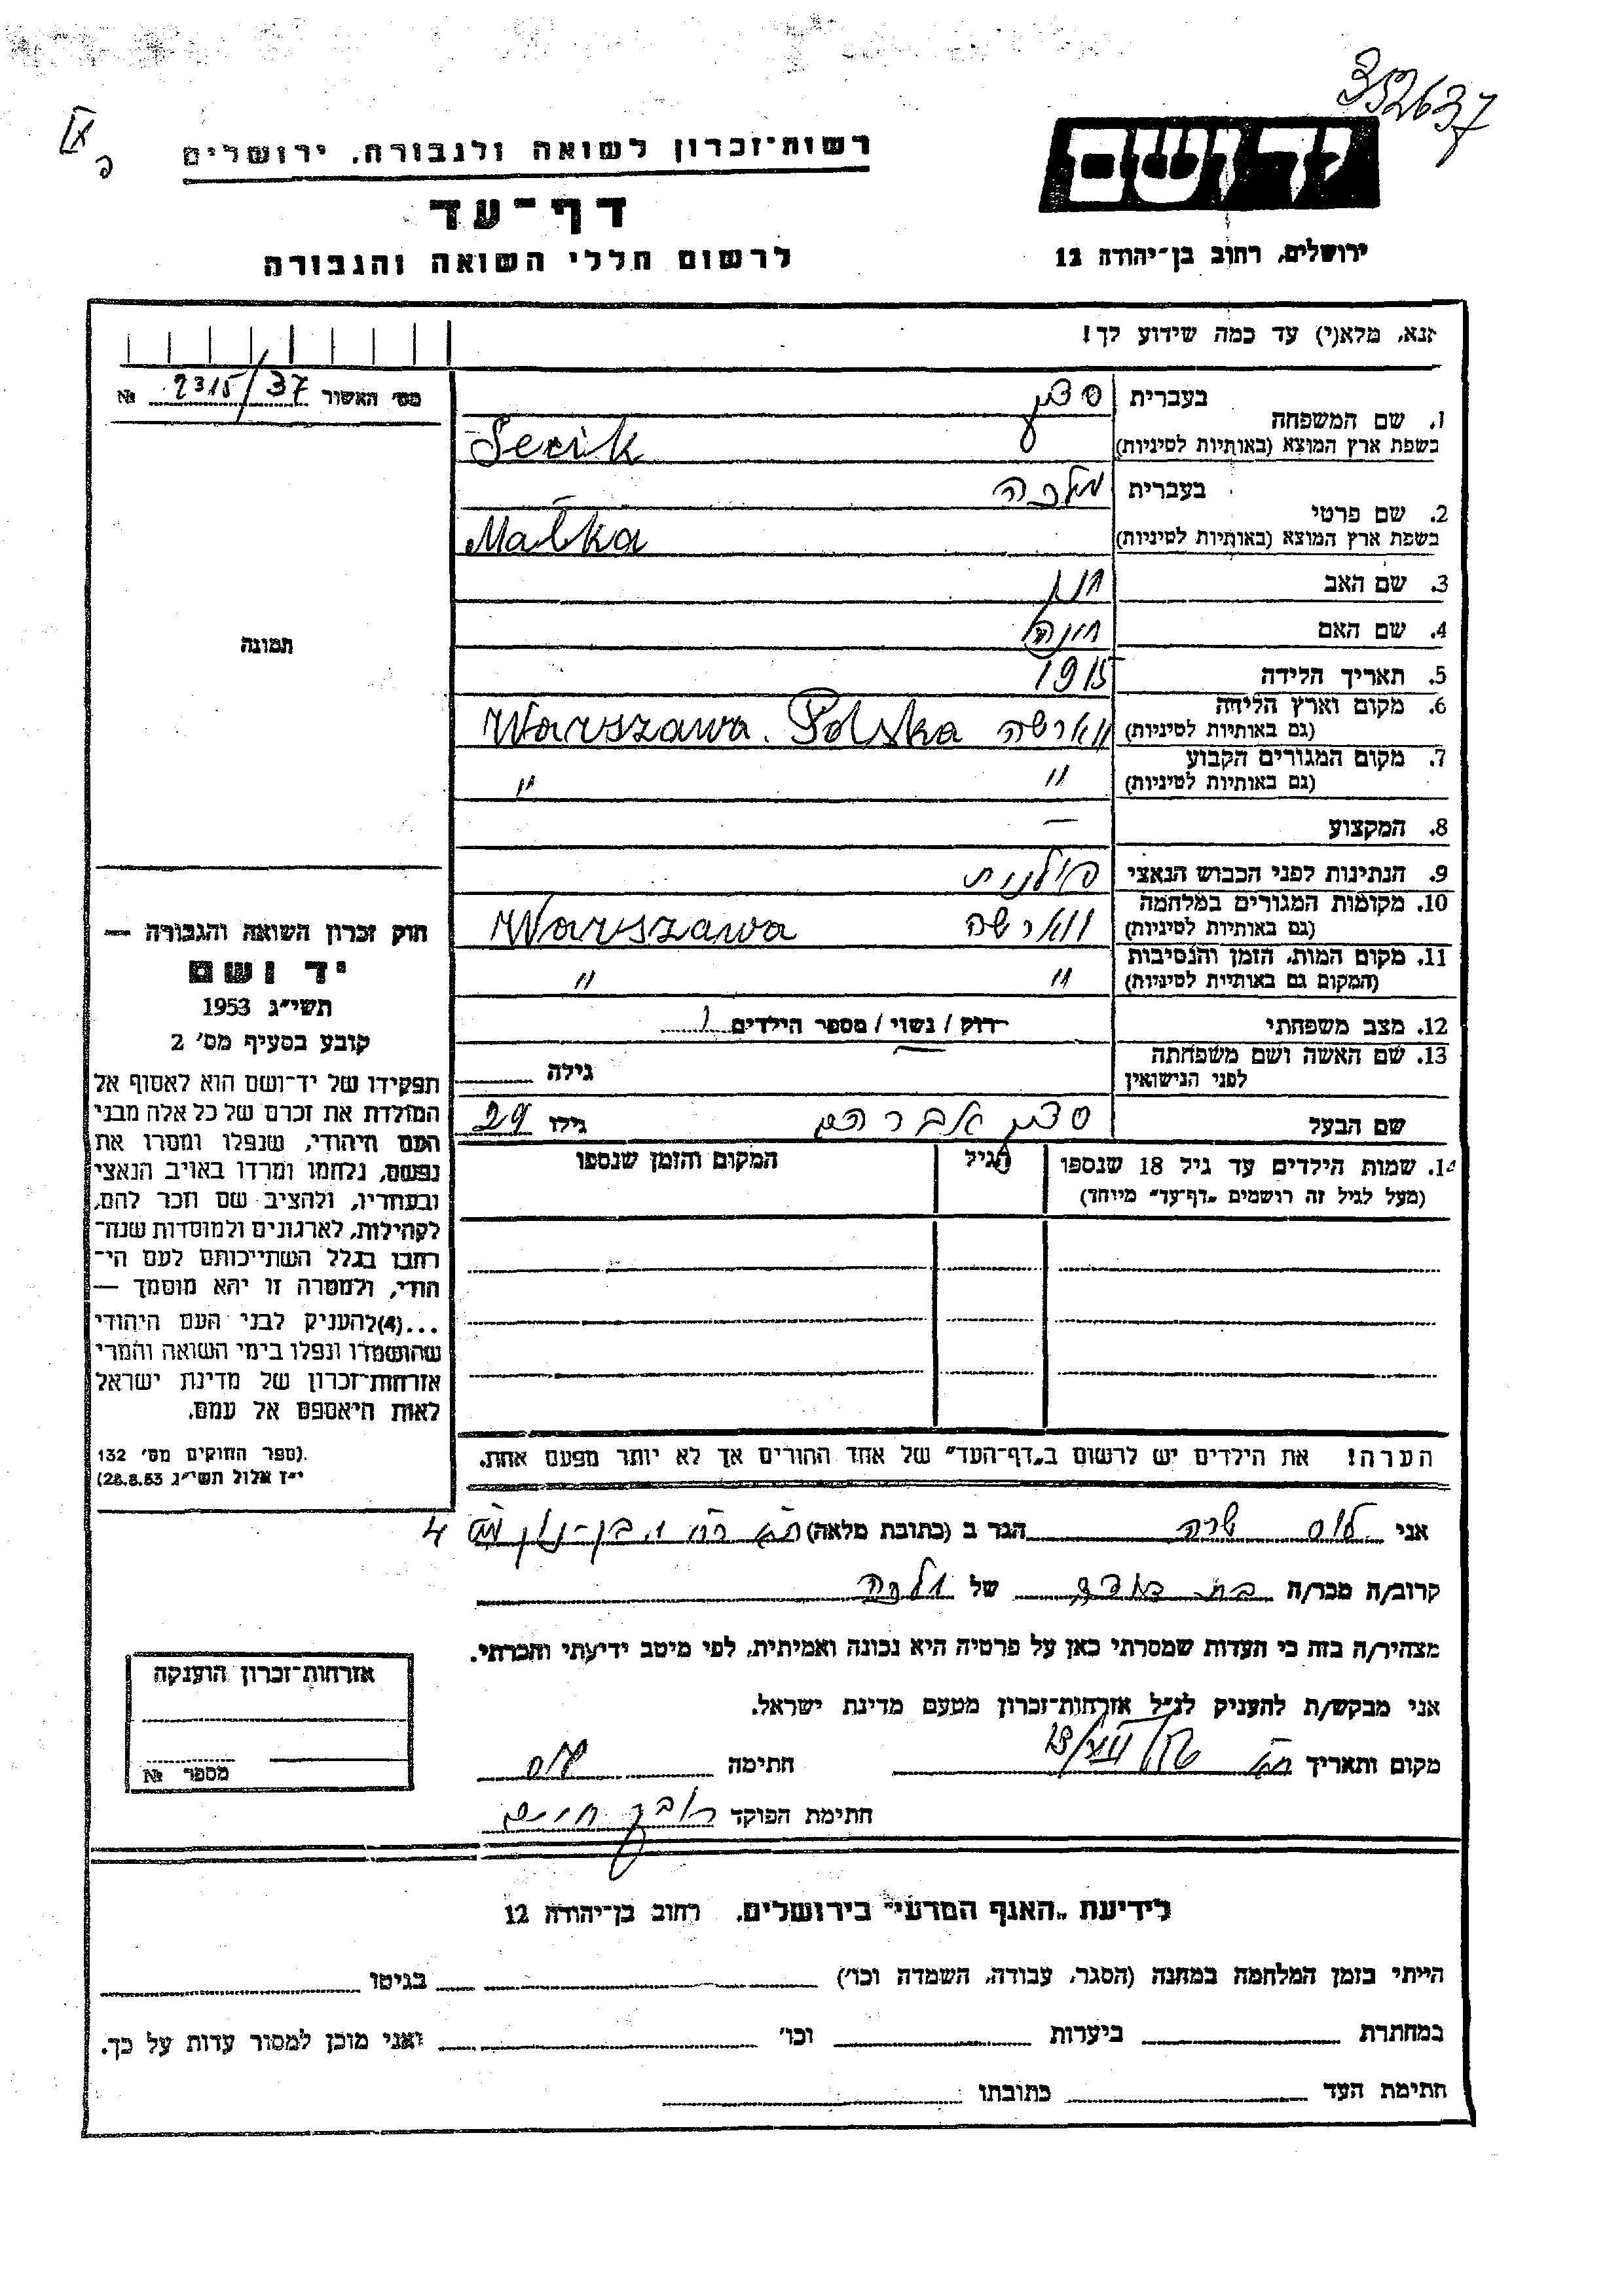 352637
רשות־זכרון לשואה ולגבורה, ירושלים
יד ושם
דף־עד
לרשום חללי השואה והגבורה
ירושלים, רחוב בן־יהודה 12
נא, מלא(י) עד כמה שידוע לך!
מס׳ האשור 2315/37 №
1. שם המשפחה
בעברית
בשפת ארץ המוצא (באותיות לטיניות) Serik
2. שם פרטי
בעברית מלכה
בשפת ארץ המוצא (באותיות לטיניות) Małka
3. שם האב
תמונה
4. שם האם חנה
5. תאריך הלידה 1915
6. מקום וארץ הלידה
(גם באותיות לטיניות) ווארשה Warszawa. Polska
7. מקום המגורים הקבוע
(גם באותיות לטיניות) " "
8. המקצוע —
9. הנתינות לפני הכבוש הנאצי פולנית
10. מקומות המגורים במלחמה
(גם באותיות לטיניות) ווארשה Warszawa
11. מקום המות, הזמן והנסיבות
(המקום גם באותיות לטיניות) " "
12. מצב משפחתי רווק / נשוי / מספר הילדים 1
13. שם האשה ושם משפחתה
לפני הנישואין גילה
שם הבעל אברהם גילו 29
14. שמות הילדים עד גיל 18 שנספו הגיל המקום והזמן שנספו
(מעל לגיל זה רושמים „דף־עד״ מיוחד)
חוק זכרון השואה והגבורה —
יד ושם
תשי״ג 1953
קובע בסעיף מס׳ 2
תפקידו של יד־ושם הוא לאסוף אל
המולדת את זכרם של כל אלה מבני
העם היהודי, שנפלו ומסרו את
נפשם, נלחמו ומרדו באויב הנאצי
ובעוזריו, ולהציב שם וזכר להם,
לקהילות, לארגונים ולמוסדות שנח־
רבו בגלל השתייכותם לעם הי־
הודי, ולמטרה זו יהא מוסמך —
...(4) להעניק לבני העם היהודי
שהושמדו ונפלו בימי השואה והמרי
אזרחות־זכרון של מדינת ישראל
לאות היאספם אל עמם.
(ספר החוקים מס׳ 132
י״ז אלול תשי״ג 28.8.53)
הערה! את הילדים יש לרשום ב„דף־העד״ של אחד ההורים אך לא יותר מפעם אחת.
אני שרה הגר ב (כתובת מלאה) 4
קרוב/ה מכר/ה בת דודה של
מצהיר/ה בזה כי העדות שמסרתי כאן על פרטיה היא נכונה ואמיתית, לפי מיטב ידיעתי והכרתי.
אני מבקש/ת להעניק לנ״ל אזרחות־זכרון מטעם מדינת ישראל.
מקום ותאריך חתימה
חתימת הפוקד
אזרחות־זכרון הוענקה
מספר №
לידיעת „האגף המדעי״ בירושלים, רחוב בן־יהודה 12
הייתי בזמן המלחמה במחנה (הסגר, עבודה, השמדה וכו׳) בגיטו
במחתרת ביערות וכו׳ ואני מוכן למסור עדות על כך.
חתימת העד כתובתו